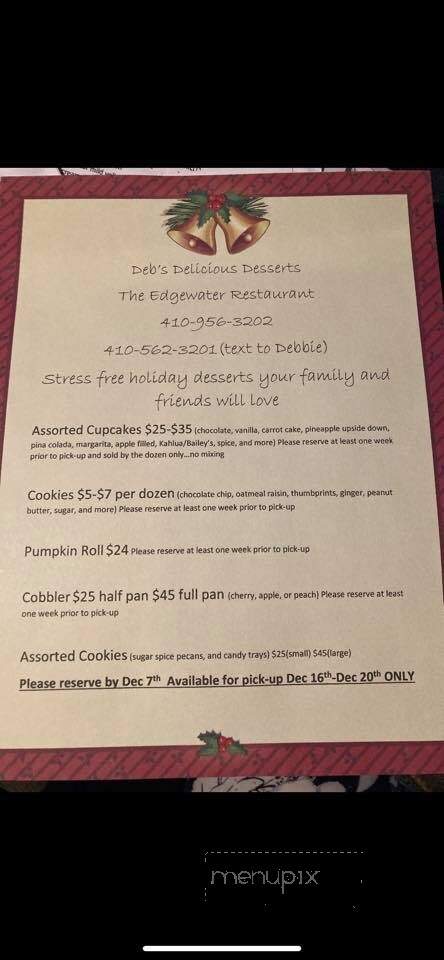 Deb's Delicious Desserts
The Edgewater Restaurant
410-956-3202
410-562-3201 (text to Debbie)
Stress free holiday desserts your family and
friends will love
Assorted Cupcakes $25-$35 (chocolate, vanilla, carrot cake, pineapple upside down,
pina colada, margarita, apple filled, Kahlua/Bailey's, spice, and more) Please reserve at least one week
prior to pick-up and sold by the dozen only...no mixing
Cookies $5-$7 per dozen (chocolate chip, oatmeal raisin, thumbprints, ginger, peanut
butter, sugar, and more) Please reserve at least one week prior to pick-up
Pumpkin Roll $24 Please reserve at least one week prior to pick-up
Cobbler $25 half pan $45 full pan (cherry, apple, or peach) Please reserve at least
one week prior to pick-up
Assorted Cookies (sugar spice pecans, and candy trays) $25(small) $45(large)
Please reserve by Dec 7th Available for pick-up Dec 16th-Dec 20th ONLY
menupix